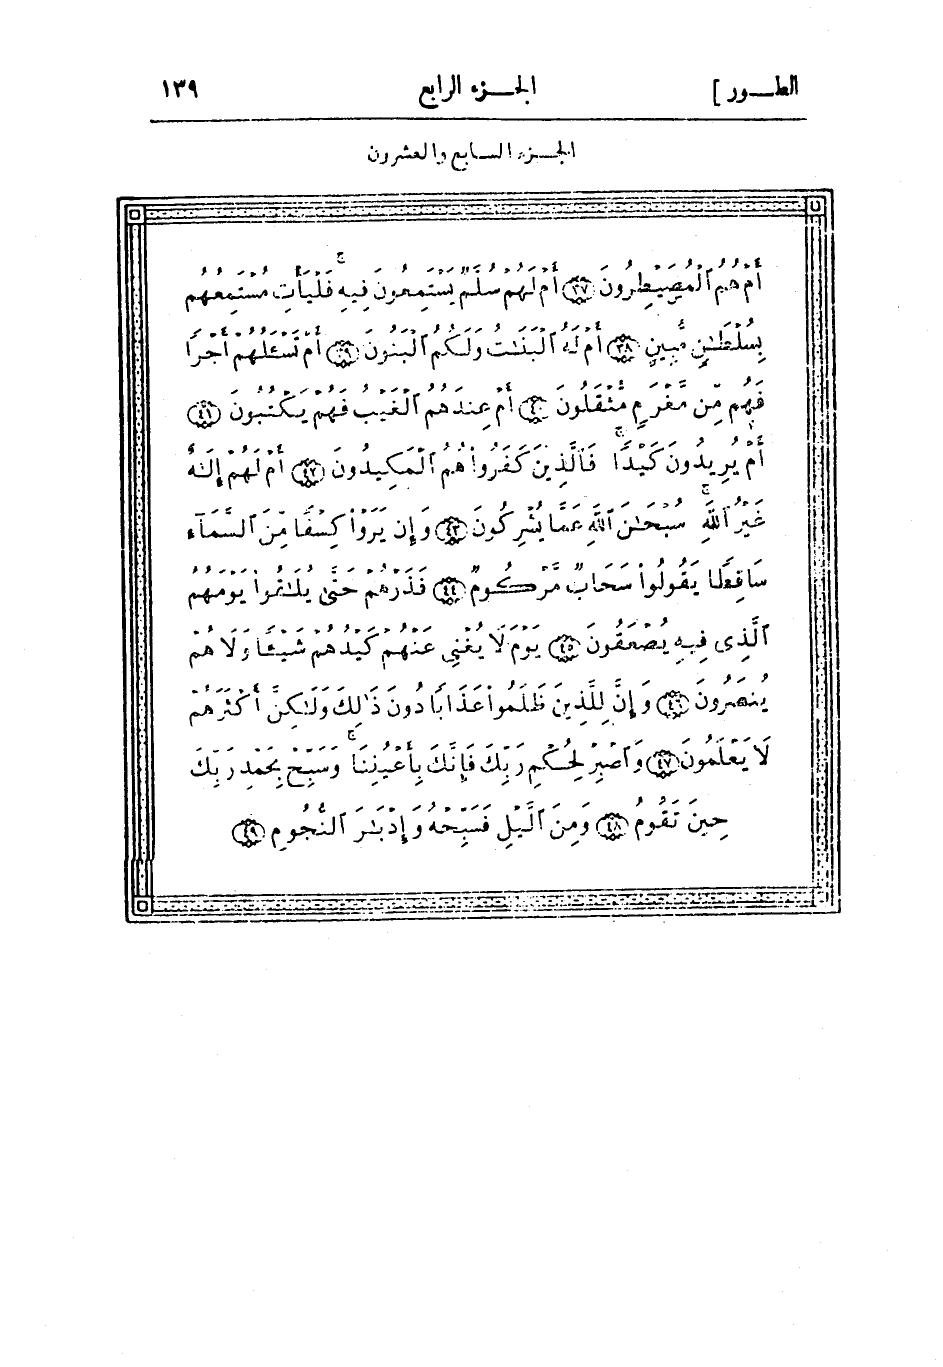 الطـــور ]
الجـــزء الرابع
١٣٩
الجـــزء الســابع والعشرون
أَمْ هُمُ ٱلْمُصَۣيْطِرُونَ ٣٧ أَمْ لَهُمْ سُلَّمٌ يَسْتَمِعُونَ فِيهِ ۖ فَلْيَأْتِ مُسْتَمِعُهُم
بِسُلْطَٰنٍ مُّبِينٍ ٣٨ أَمْ لَهُ ٱلْبَنَٰتُ وَلَكُمُ ٱلْبَنُونَ ٣٩ أَمْ تَسْـَٔلُهُمْ أَجْرًا
فَهُم مِّن مَّغْرَمٍ مُّثْقَلُونَ ٤٠ أَمْ عِندَهُمُ ٱلْغَيْبُ فَهُمْ يَكْتُبُونَ ٤١
أَمْ يُرِيدُونَ كَيْدًا ۖ فَٱلَّذِينَ كَفَرُوا۟ هُمُ ٱلْمَكِيدُونَ ٤٢ أَمْ لَهُمْ إِلَٰهٌ
غَيْرُ ٱللَّهِ ۚ سُبْحَٰنَ ٱللَّهِ عَمَّا يُشْرِكُونَ ٤٣ وَإِن يَرَوْا۟ كِسْفًا مِّنَ ٱلسَّمَآءِ
سَاقِطًا يَقُولُوا۟ سَحَابٌ مَّرْكُومٌ ٤٤ فَذَرْهُمْ حَتَّىٰ يُلَٰقُوا۟ يَوْمَهُمُ
ٱلَّذِى فِيهِ يُصْعَقُونَ ٤٥ يَوْمَ لَا يُغْنِى عَنْهُمْ كَيْدُهُمْ شَيْـًٔا وَلَا هُمْ
يُنصَرُونَ ٤٦ وَإِنَّ لِلَّذِينَ ظَلَمُوا۟ عَذَابًا دُونَ ذَٰلِكَ وَلَٰكِنَّ أَكْثَرَهُمْ
لَا يَعْلَمُونَ ٤٧ وَٱصْبِرْ لِحُكْمِ رَبِّكَ فَإِنَّكَ بِأَعْيُنِنَا ۖ وَسَبِّحْ بِحَمْدِ رَبِّكَ
حِينَ تَقُومُ ٤٨ وَمِنَ ٱلَّيْلِ فَسَبِّحْهُ وَإِدْبَٰرَ ٱلنُّجُومِ ٤٩